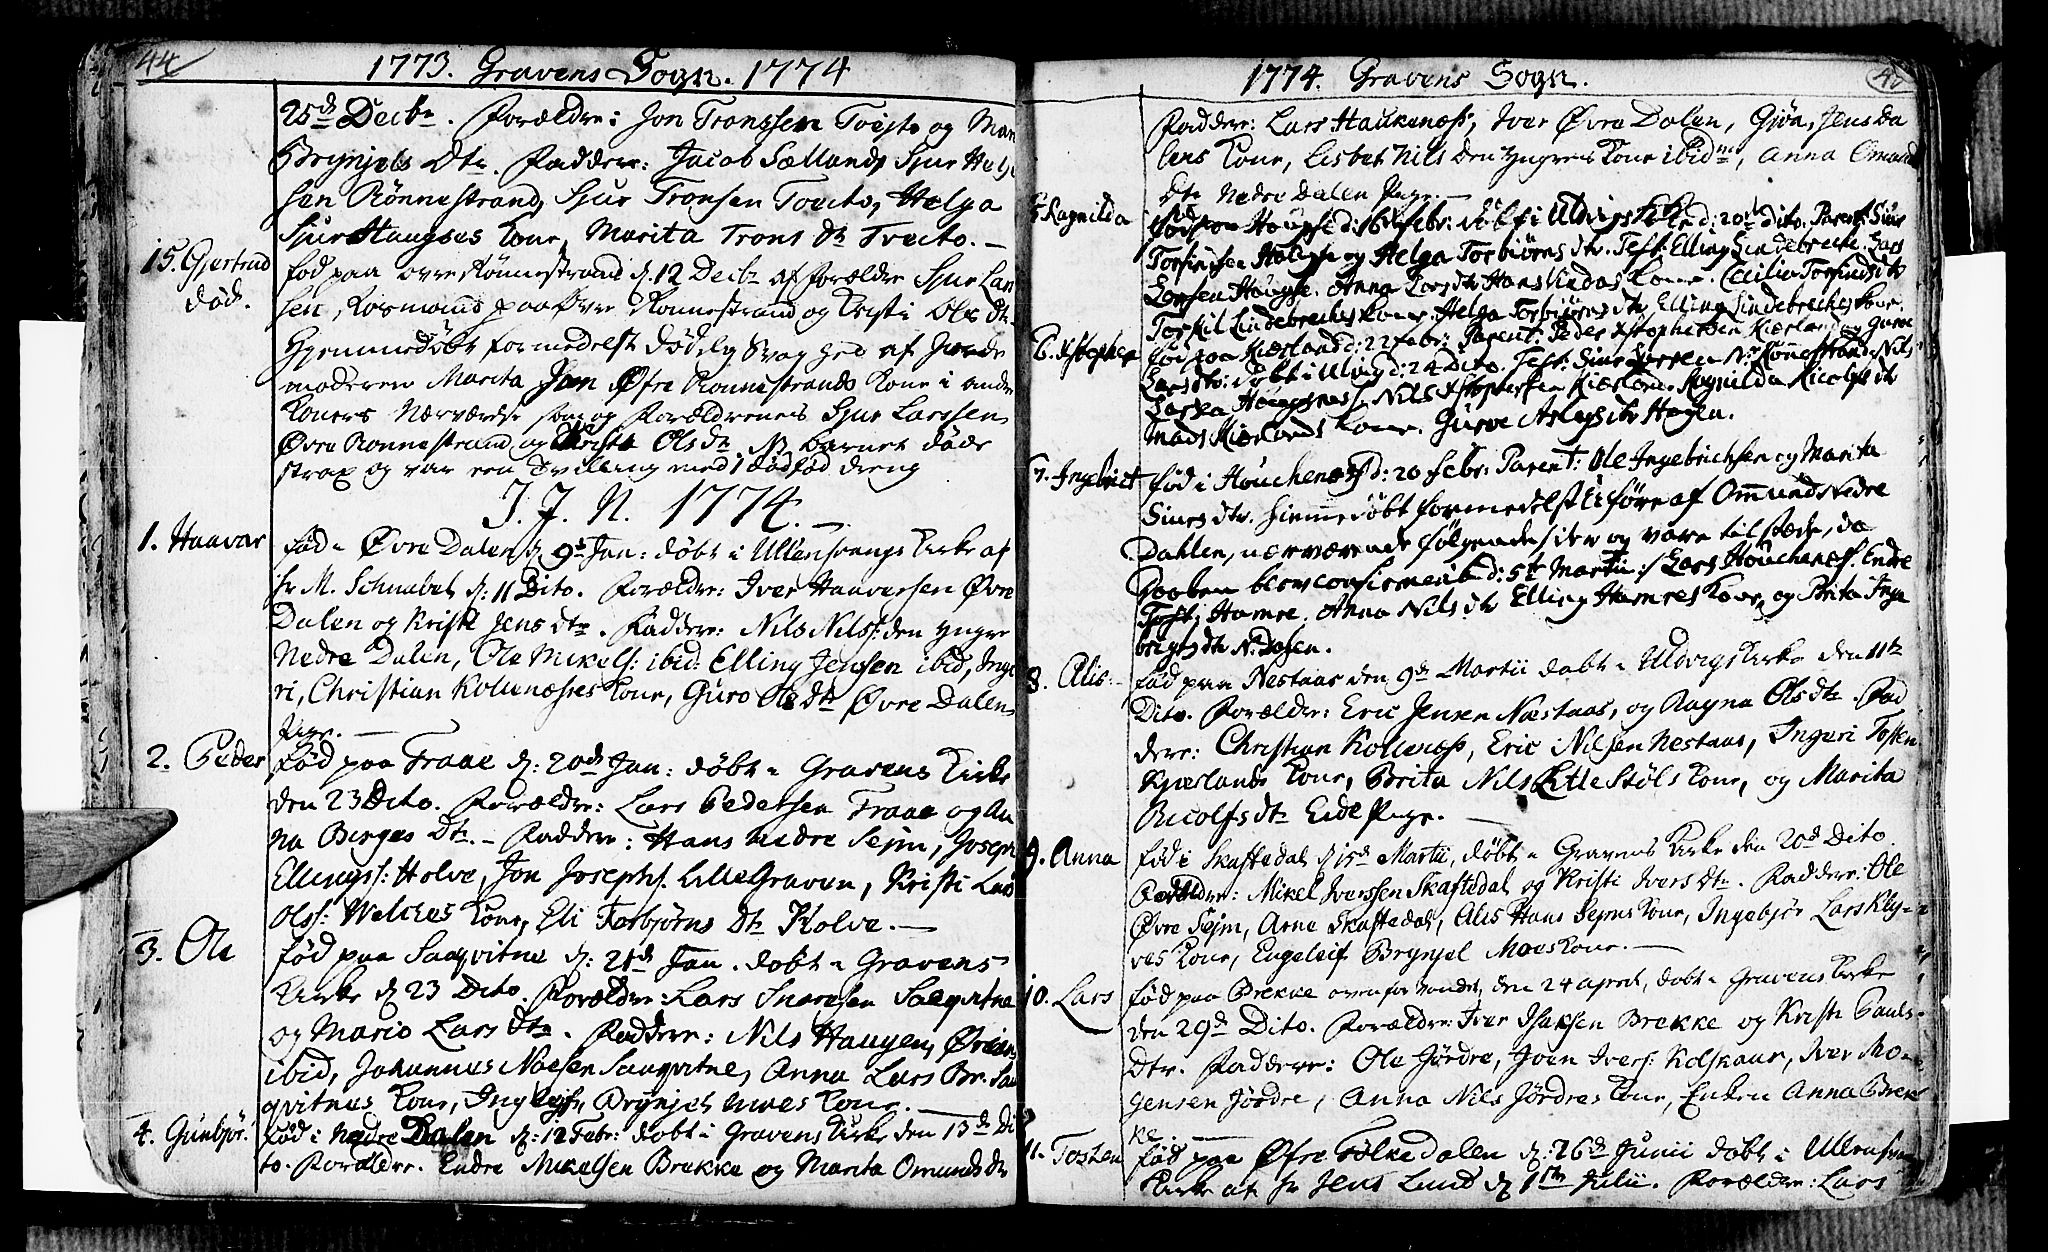 44
1773. Gravens Sogn. 1774
25de Decbr. Forældre: Jon Tronssen Tveito og Mari
Brynjels Dtr. Faddere: Jacob Sælland, Sjur Helje
sen Rönnestrand, Sjur Tronsen Tveito, Helga
Sjur Haugses Kone, Marita Trons Dtr Tveito. —
15. Gjertrud
död.
föd paa øvre Rönnestrand d. 12 Decbr af Forældre Sjur Lar
sen, Rosmand paa Øvre Ronnestrand og Kristi Ols Dtr.
Hjemmedöbt formedelst dödelig Svaghed af Jorde
moderen Marita Jon Øfre Ronnestrands Kone i andre
Koners Nærværelse som og Forældrenes Sjur Larssen
Øvre Ronnestrand og Kristi Olsdtr. NB barnet döde
strax og var een Tvilling med 1 dödföd dreng
I. J. N. 1774. —
1. Haavar
föd i Øvre Dalen d 9de Jan: döbt i Ullensvangs Kirke af
hr M. Schnabel d: 11 Dito. Forældre: Iver Haaversen Øvre
Dalen og Kristi Jens dtr. Faddere: Nils Nilss: den yngre
Nedre Dalen, Ole Mikels: ibid: Elling Jensen ibid, Inge
ri, Christian Kollenæsses Kone, Guro Ole Dtr Øvre Dalen
Pige. —
2. Peder
föd paa Traae d: 20de Jan: döbt i Gravens Kirke
den 23 Dito. Forældre: Lars Pedersen Traae og An
na Berges Dtr. — Faddere: Hans nedre Sejm, Joseph
Ellings: Holve, Jon Josephs. Lille Graven, Kristi Lars
Olss: Welkes Kone, Eli Torbjörns Dtr Holve. —
3. Ole
föd paa Saaqvitne d: 21de Jan. döbt i Gravens
Kirke d 23 Dito. Forældre: Lars Snaresen Saaqvitne
og Mario Lars dtr. Faddere: Nils Haugen, Örian
ibid, Johannes Noesen Saaqvitne, Anna Lars Br. Saa
qvitnes Kone, Ingeleif, Brynjel Moes Kone. —
4. Gunbjör.
föd i nedre Dalen d: 12 Febr: döbt i Gravens Kirke den 13de Di
to. Forældre. Endre Mikelsen Brekke og Marita Omunds Dtr
1774. Gravens Sogn.
Faddere: Lars Haukenæss, Iver Øvre Dalen, Gjöa, Jens Da
lens Kone, Lisbet Nils den yngres Kone ibidm, Anna Omund
Dtr Nedre Dalen Pige. —
5. Ragnilda
föd paa Hougse d: 16 Febr: döbt i Ulvigs Kirke d: 20de Dito. Parent: Siur
Torfinsen Hougse og Helga Torbiörns dtr. Test: Elling Lindebrecke. Lars
Larsen Hougse. Anna Larsdtr Hans Lindas Kone. Cecilia Torfinsdtr
Torkil Lindebreches Kone. Helga Torbiörns dtr, Elling Lindebreches Kone.
6. Xstopher
föd paa Kiærland d: 22 Febr: Parent: Peder Xstophersen Kiærland og Gurve
Larsdtr: döbt i Ulvig d: 24 Dito. Test: Siur Larsen N: Rönnestrand. Nils
Larsen Hougsness. Nils Xstophersen Kiærland. Ragnilda Ricolfs dtr
Mads Kiærlands Kone. Gurve Aslags dtr Hagen.
7. Ingebrict
föd i Houchenæss d: 20 Febr: Parent: Ole Ingebrichsen og Marita
Siurs dtr. hiemmedöbt formedelst Ei före af Ommund Nedre
Dahlen, nærværende fölgende/ der og vare tilstæde, da
Daaben blev confirmerit d: 5te Martii:/ Lars Houchenæss. Endre
Tost: Hamre. Anna Nils dtr Elling Hamres Kone, og Brita Inge
brigts dtr N: Dalen.
8. Alis: —
föd paa Nestaas den 9de Martii döbt i Uldvigs Kirke den 11te
Dito. Forældre: Eric Jensen Næstaas, og Ragna Ols dtr. Fad
dere: Christian Kollenæss, Eric Nilsen Nestaas, Ingeri Tosten
Kjærlands Kone, Brita Nils Lille Støls Kone, og Marita
Ricolfs dtr Eide Pige. —
9. Anna
föd i Skaftedal d 15de Martii, döbt i Gravens Kirke den 20de Dito
Forældre: Mikel Iverssen Skaftedal og Kristi Ivers Dtr. Faddere: Ole
Øvre Sejm, Arne Skaftedal, Alis Hans Sejms Kone, Ingebjör Lars Kly-
ves Kone, Engeleif Brynjel Moes Kone. —
10. Lars
föd paa Brekke ovenfor Vandet, den 24 April, döbt i Gravens Kirke
den 29de Dito. Forældre: Iver Isaksen Brekke og Kristi Pauls-
Dtr. Faddere: Ole Jördre, Joen Ivers: Kolskaar, Iver Mo-
gensen Jördre, Anna Nils Jördres Kone, Enken Anna Brek
ke. —
11. Tosten
föd paa Øfre Folkedalen d: 26de Junii döbt i Ullensvangs
Kirke af hr Jens Lund d 1te Julii. Forældre: Lars